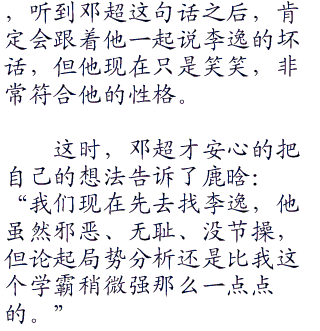 ，听到邓超这句话之后，肯
定会跟着他一起说李逸的坏
话，但他现在只是笑笑，非
常符合他的性格。
这时，邓超才安心的把
自己的想法告诉了鹿晗：
“我们现在先去找李逸，他
虽然邪恶、无耻、没节操，
但论起局势分析还是比我这
个学霸稍微强那么一点点
的。”